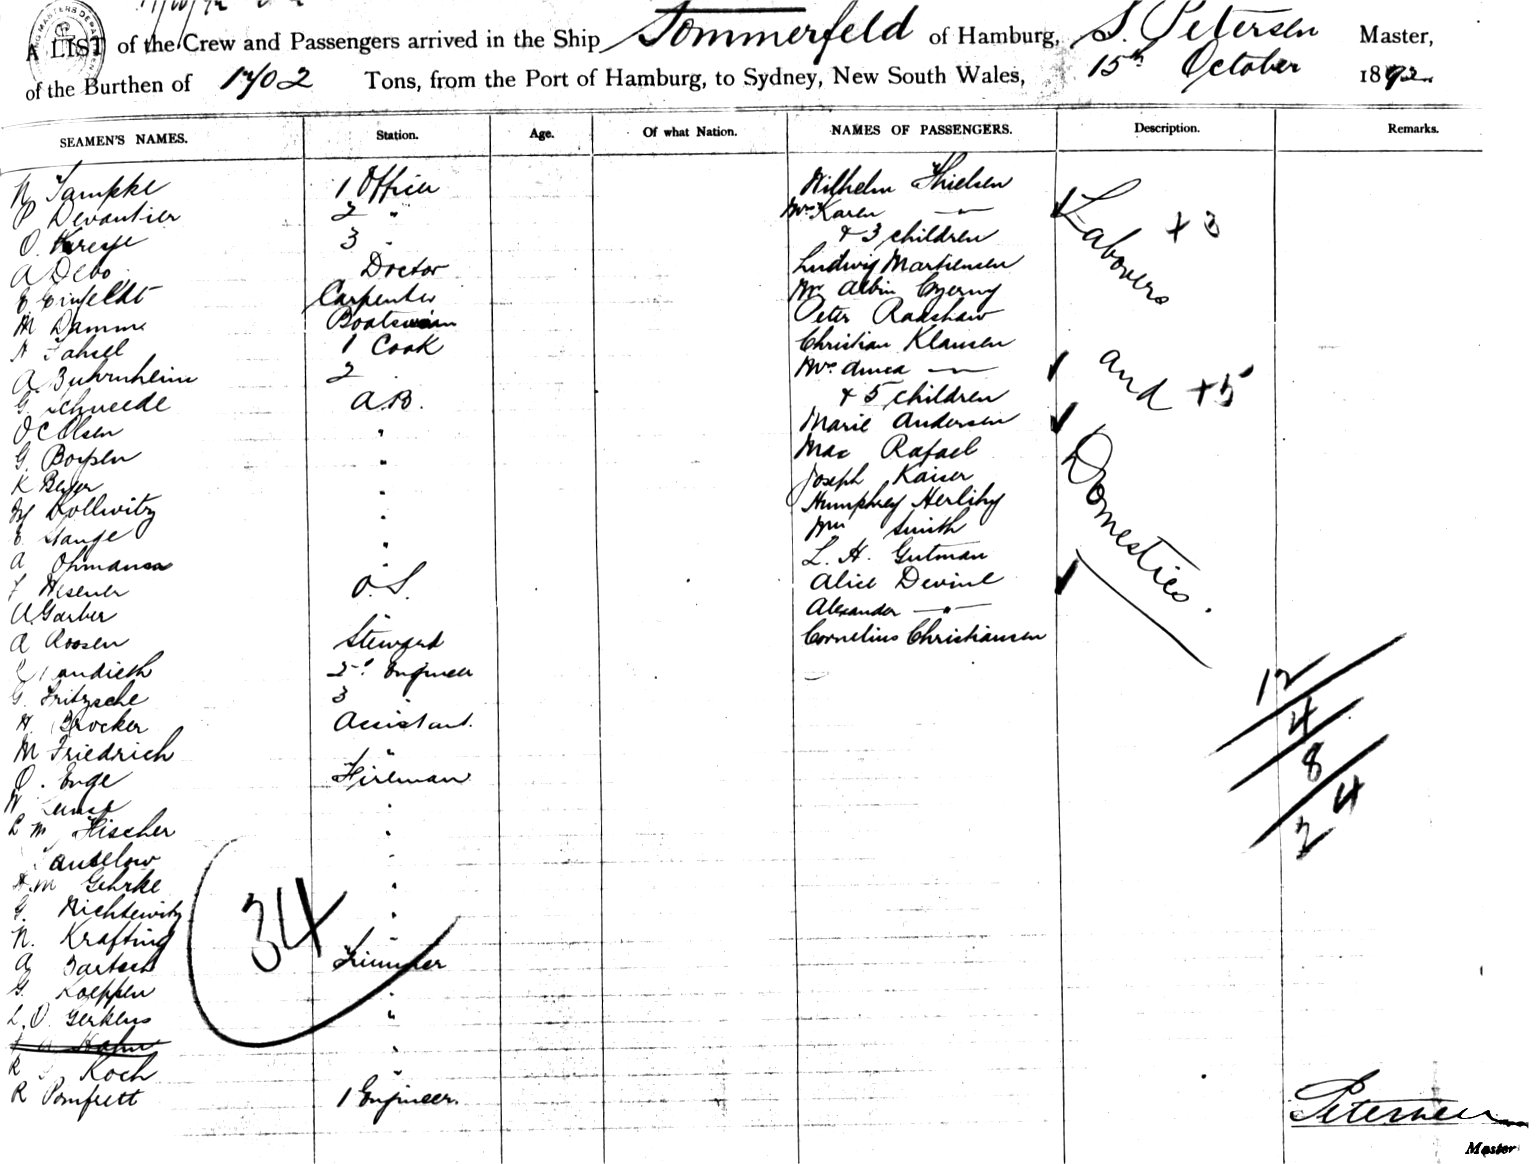 A LIST of the Crew and Passengers arrived in the Ship Sommerfeld of Hamburg, S. Petersen Master,
of the Burthen of 1702 Tons, from the Port of Hamburg, to Sydney, New South Wales, 15th October 1892
SEAMEN'S NAMES. Station. Age. Of what Nation. NAMES OF PASSENGERS. Description. Remarks.
N Tampke 1 Officer Wilhelm Thielsen
P Devantier 2 " Mrs Karen —"—
O. 3 " & 3 children
A Debo Doctor Ludwig Martensen
E Einfeldt Carpenter Mr Albin Czerny
M Damme Boatswain Peter Ranshaw
1 Cook Christian Klausen
A. 2 Mrs —"—
G. Schweede A.B. & 5 children
O C Olsen " Marie Andersen
G. Boysen " Max Rafael
K Beyer " Joseph Kaiser
Dollwitz " Humphrey Herlihy
E. Stange " Wm Smith
A Ohmann " L. H. Gutman
F Wesener O.S. Alice Devine
A Garber Alexander —"—
A Roosen Steward Cornelius Christiansen
2d Engineer
G. Fritzsche 3 "
H. Brocker Assistant
M Friedrich "
O. Enge Fireman
W "
L M Fischer "
"
H. M Gehrke "
G. "
N. Krafting "
A Bartsch Trimmer
G. Koeppen "
L. O. Gerkens "
Hahn "
R Koch "
R Pomfrett 1 Engineer.
Labourers + 3
and + 5
Domestics.
12
4
8
24
34
Petersen
Master